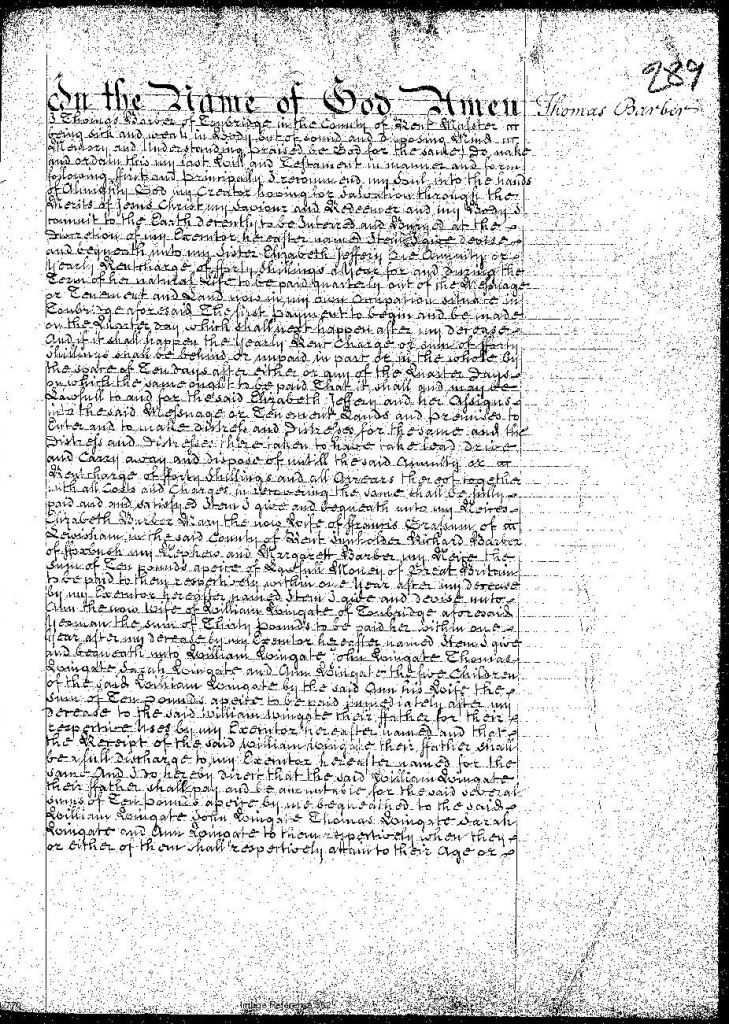 289
In the Name of God Amen
Thomas Barber
I Thomas Barber of Tonbridge in the County of Kent Malster
being sick and weak in Body but of sound and disposing Mind
Memory and Understanding praised be God for the same do make
and ordain this my last Will and Testament in manner and form
following first and principally I recommend my Soul into the hands
of Almighty God my Creator hoping for Salvation through the
Merits of Jesus Christ my Saviour and Redeemer and my Body I
commit to the Earth decently to be Interred and Buryed at the
Discretion of my Executor hereafter named Item I give devise
and bequeath unto my Sister Elizabeth Jeffery One Annuity or
Yearly Rentcharge of fforty Shillings a Year for and during the
Term of her natural Life to be paid quarterly out of the Messuage
or Tenement and Land now in my own Occupation situate in
Tonbridge aforesaid The first payment to begin and be made
on the Quarter day which shall next happen after my decease
And if it shall happen the Yearly Rent Charge or sum of fforty
Shillings shall be behind or unpaid in part or in the whole by
the space of Ten days after either or any of the Quarter Days
on which the same ought to be paid That it shall and may be
Lawfull to and for the said Elizabeth Jeffery and her Assigns
into the said Messuage or Tenement Lands and Premises to
Enter and to make distress and Distresses for the same and the
Distress and Distresses there taken to have take lead drive
and Carry away and dispose of untill the said Annuity or
Rentcharge of fforty Shillings and all Arrears thereof together
with all Costs and Charges in recovering the same shall be fully
paid and and satisfied Item I give and bequeath unto my Neices
Elizabeth Barber Mary the now Wife of ffrancis of
Lewisham in the said County of Kent Innholder Richard Barber
of my Nephew and Margarett Barber my Neice the
Sum of Ten pounds apeice of Lawfull Money of Great Britain
to be paid to them respectively within one Year after my decease
by my Executor hereafter named Item I give and devise unto
Ann the now Wife of William Wingate of Tonbridge aforesaid
Yeoman the sum of Thirty Pounds to be paid her within one
Year after my decease by my Executor hereafter named Item I give
and bequeath unto William Wingate John Wingate Thomas
Wingate Sarah Wingate and Ann Wingate the five Children
of the said William Wingate by the said Ann his Wife the
Sum of Ten Pounds apeice to be paid immediately after my
decease to the said William Wingate their ffather for their
respective Uses by my Executor hereafter named and that
the Receipt of the said William Wingate their ffather shall
be a full discharge to my Executor hereafter named for the
same And I do hereby direct that the said William Wingate
their ffather shall pay and be accountable for the said several
sums of Ten Pounds apeice by me bequeathed to the said
William Wingate John Wingate Thomas Wingate Sarah
Wingate and Ann Wingate to them respectively when they
or either of them shall respectively attain to their Age or
Image Reference